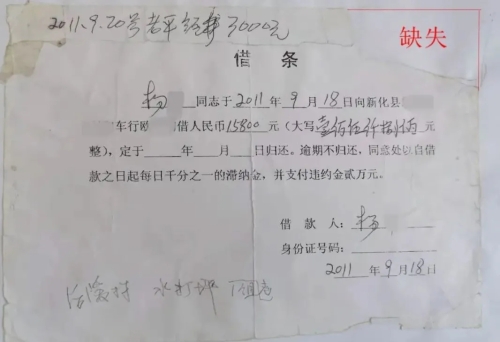 2011.9.20号 3000元
缺失
借条
杨 同志于2011年9月18日向新化县
车行 借人民币15800元(大写壹佰伍仟捌佰元
整),定于 年 月 日归还。逾期不归还,同意处以自借
款之日起每日千分之一的滞纳金,并支付违约金贰万元。
借款人:杨
身份证号码:
2011年9月18日